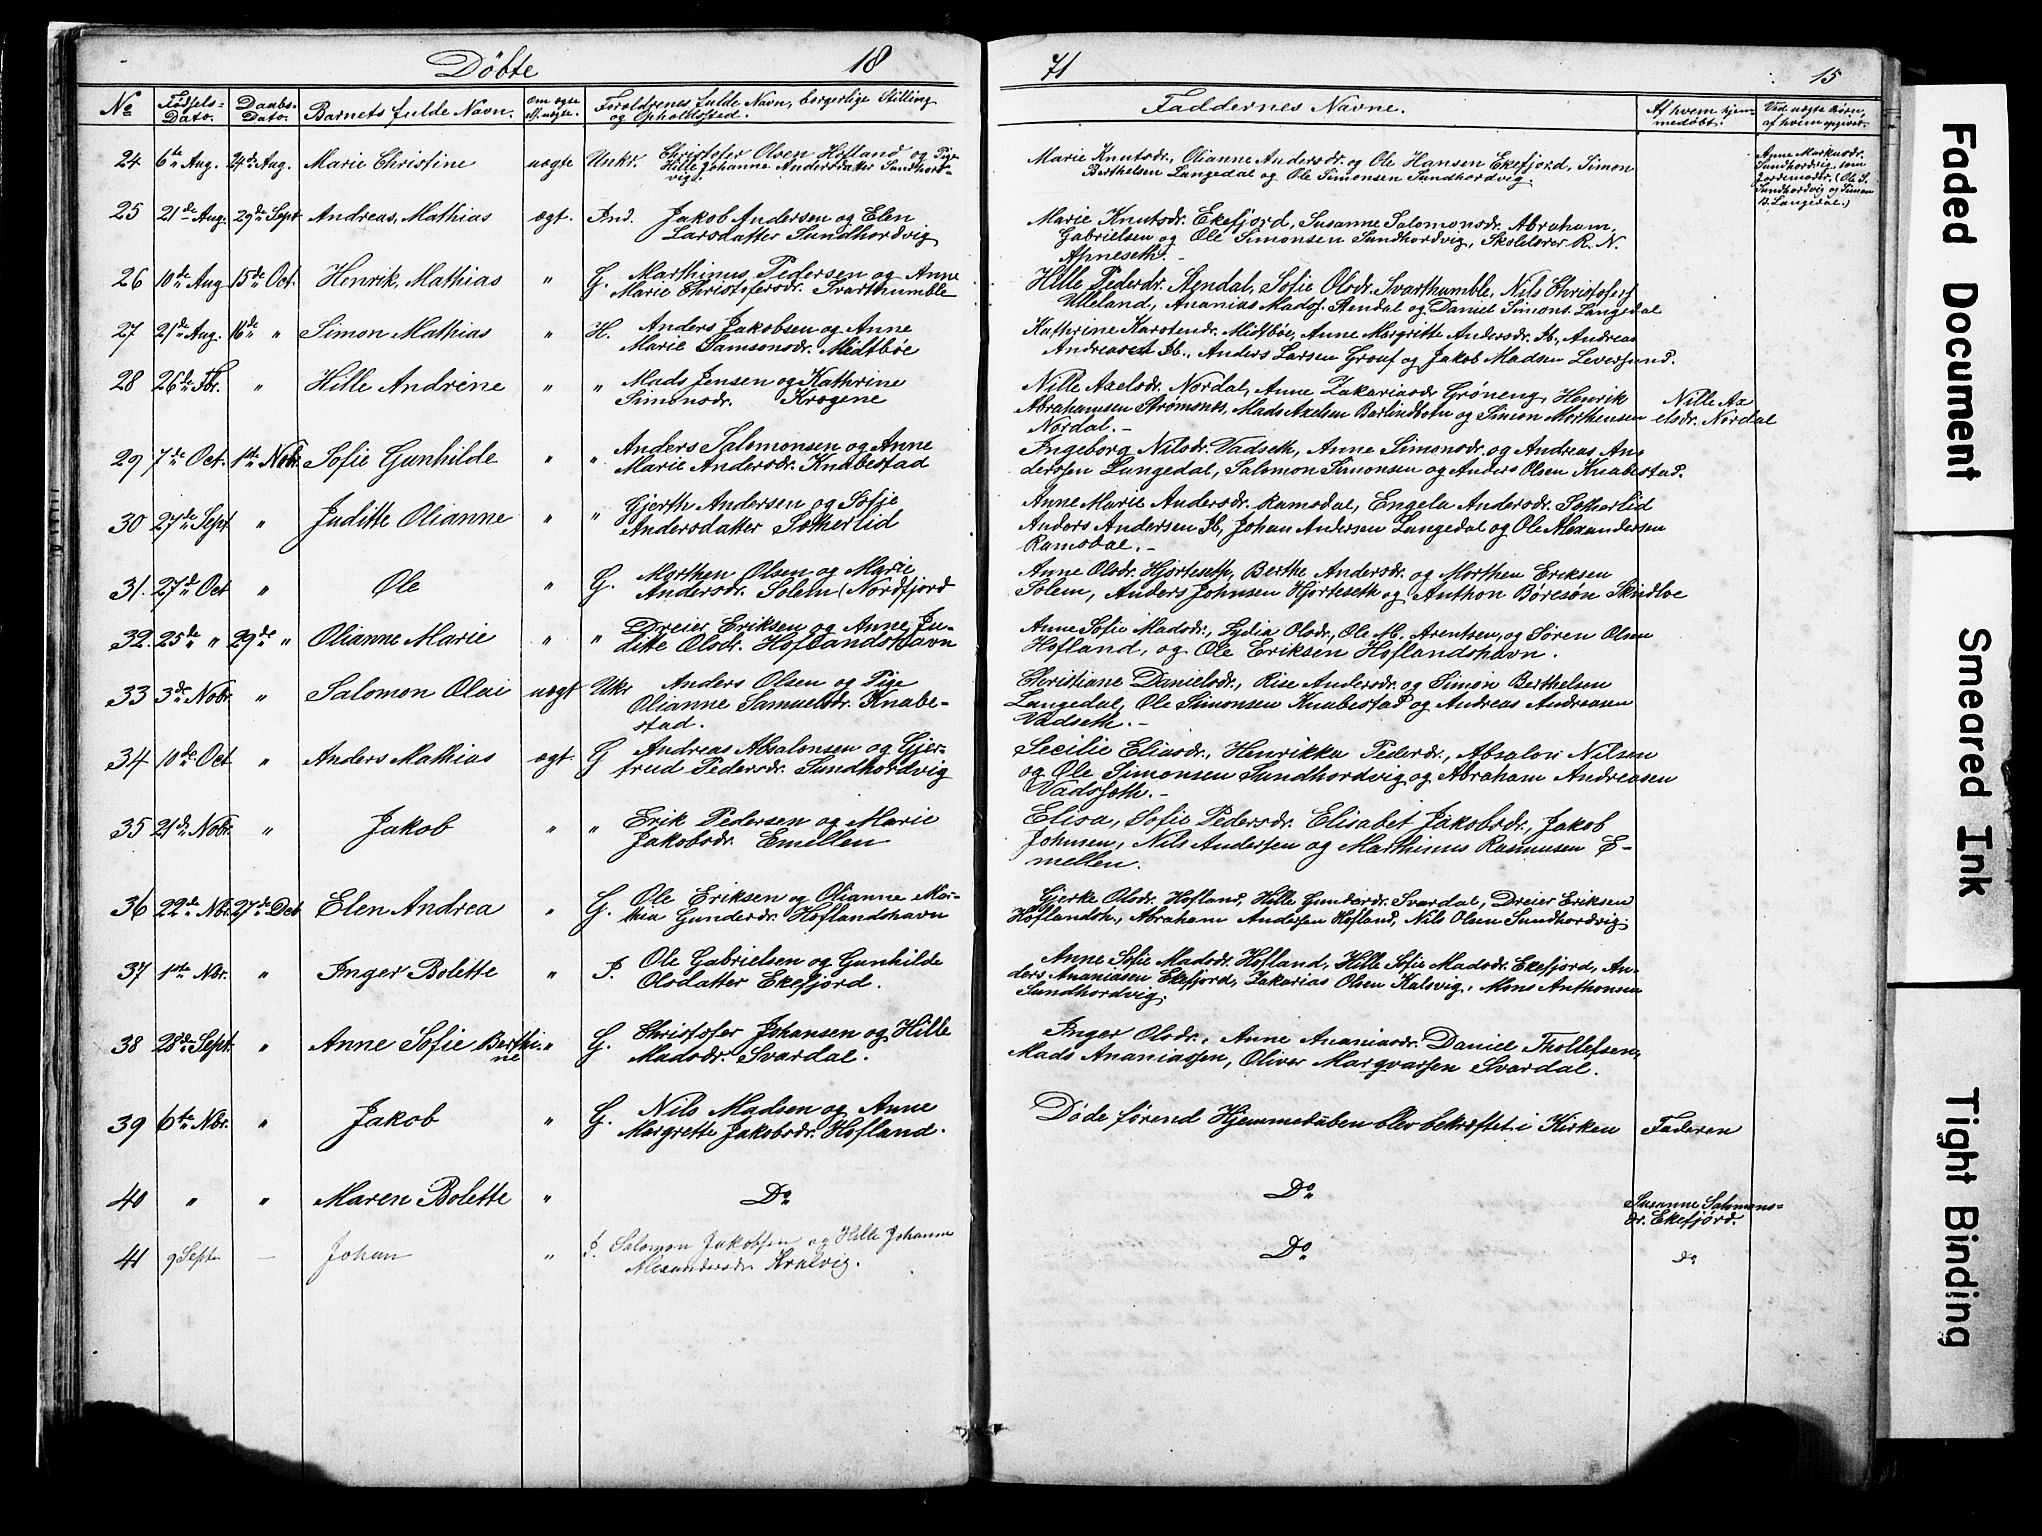 Døbte 18
71 15
No
Fødsels-
Dato.
Daabs-
Dato.
Barnets fulde Navn.
Om ægte
el. uægte.
Forældrenes fulde Navn, borgerlige Stilling
og Opholdssted.
Faddernes Navne.
Af hvem hjem-
medøbt.
Ved uægte Børn,
af hvem opgivet.
24 6te Aug. 24de Aug. Marie Christine uægte Unkr. Christofer Olsen Hofland og Pige
Hille Johanne Andersdatter Sundhord-
vig.
Marie Knutsdr., Olianne Andersdr. og Ole Hansen Ekefjord, Simon
Berthelsen Langedal og Ole Simonsen Sundhordvig.
Anne Markusdr.
Sundhordvig, som
Jordemoder. (Ole S.
Sundhordvig og Simon
B. Langedal.)
25 21de Aug. 29de Sept. Andreas Mathias ægt. Ind. Jakob Andersen og Elen
Larsdatter Sundhordvig
Marie Knutsdr. Ekefjord, Susanne Salomonsdr. Abraham
Gabrielsen og Ole Simonsen Sundhordvig, Skolelærer R. N.
Apneseth. -
26 10de Aug 15de Oct. Henrik Mathias " G. Marthinus Pedersen og Anne
Marie Christofersdr. Svarthumble
Hille Pedersdr. Stendal, Sofie Olsdr. Svarthumble, Nils Christofers
Ulleland, Ananias Mads. Stendal og Daniel Simons. Langedal
27 21de Aug. 16de " Simon Mathias " H. Anders Jakobsen og Anne
Marie Samsonsdr. Midtbøe
Kathrine Karstendr. Midtbøe, Anne Margritte Andersdr. Ib., Andreas
Andreasen Ib., Anders Larsen Grouf og Jakob Madsen Leversund.
28 26de Fbr. " Hille Andrine " " Mads Jensen og Kathrine
Simonsdr. Krogene
Nille Axelsdr. Nordal, Anne Zakariasdr Grøneng, Henrik
Abrahamsen Strømsnes, Mads Axelsen Barlindbotn og Simon Morthensen
Nordal. -
Nille Ax
elsdr. Nordal
29 7de Oct. 1ste Nobr. Sofie Gunhilde " " Anders Salomonsen og Anne
Marie Andersdr. Knabestad
Ingeborg Nilsdr. Vadseth, Anne Simonsdr. og Andreas An-
derssen Langedal, Salomon Simonsen og Anders Olsen Knabestad.
30 27de Sept. " Juditte Olianne " " Gjerth Andersen og Sofie
Andersdatter Sotherlid
Anne Marie Andersdr. Ramsdal, Engela Andersdr. Sotherlid
Anders Andersen Ib, Johan Andersen Langedal og Ole Alexandersen
Ramsdal. -
31. 27de Oct " Ole " G. Morthen Olsen og Marie
Andersdr. Solem (Nordfjord
Anne Olsdr. Hjorteseth, Berthe Andersdr. og Morthen Eriksen
Solem, Anders Johnsen Hjorteseth og Anthon Børesøn Skindloe
32. 25de " 29de " Olianne Marie " " Dreier Eriksen og Anne Ju-
ditte Olsdr. Hoflandshavn
Anne Sofie Madsdr., Lydia Olsdr., Ole M. Arentsen, og Søren Olsen
Hofland, og Ole Eriksen Hoflandshavn.
33 3de Nobr. " Salomon Olai uægt Ukr Anders Olsen og Pige
Olianne Samuelsdr. Knabe-
stad.
Christiane Danielsdr., Rise Andersdr. og Simon Berthelsen
Langedal, Ole Simonsen Knabestad og Andreas Andreasen
Vadseth. -
34 10de Oct " Anders Mathias ægt. G Andreas Absalonsen og Gjer-
trud Pedersdr. Sundhordvig
Secilie Eliasdr., Henrikka Pedersdr., Absalon Nilsen
og Ole Simonsen Sundhordvig og Abraham Andreasen
Vadseth. -
35 21de Nobr. " Jakob " " Erik Pedersen og Marie
Jakobsdr. Emellen
Elisa, Sofie Pedersdr. Elisabet Jakobsdr., Jakob
Johnsen, Nils Anderssen og Marthinus Rasmusen E-
mellen.
36 22de Nbr. 27de Dec Elen Andrea " G. Ole Eriksen og Olianne Ma-
thea Gundersdr. Hoflandshavn
Gjerke Olsdr. Hofland, Hille Gundersdr. Svardal, Dreier Eriksen
Hoflandsh., Abraham Andersen Hofland, Nils Olsen Sundhordvig.
37 1ste Nbr. " Inger Bolette " I. Ole Gabrielsen og Gunhilde
Olsdatter Ekefjord.
Anne Sofie Madsdr. Hofland, Hille Sofie Madsdr. Ekefjord, An-
ders Ananiasen Ekefjord, Zakarias Olsen Kalsvig, Mons Anthonsen
Sundhordvig.
38 28de Sept. " Anne Sofie Berthi-
ne " G. Christofer Johansen og Hille
Madsdr. Svardal.
Inger Olsdr., Anne Ananiasdr. Daniel Thollefsen,
Mads Ananiassen, Oliver Margvarsen Svardal.
39 6te Nbr. " Jakob " G. Nils Madsen og Anne
Margrette Jakobsdr. Hofland.
Døde førend Hjemmedaaben blev bekræftet i Kirken Faderen
40 " " Maren Bolette " Do Do Susanne Salomons-
dr. Ekefjord.
41 9 Sept. - Johan " I. Salomon Jakobsen og Hille Johanne
Alexandersdr. Kralvig.
Do do
Faded Document
Smeared Ink
Tight Binding